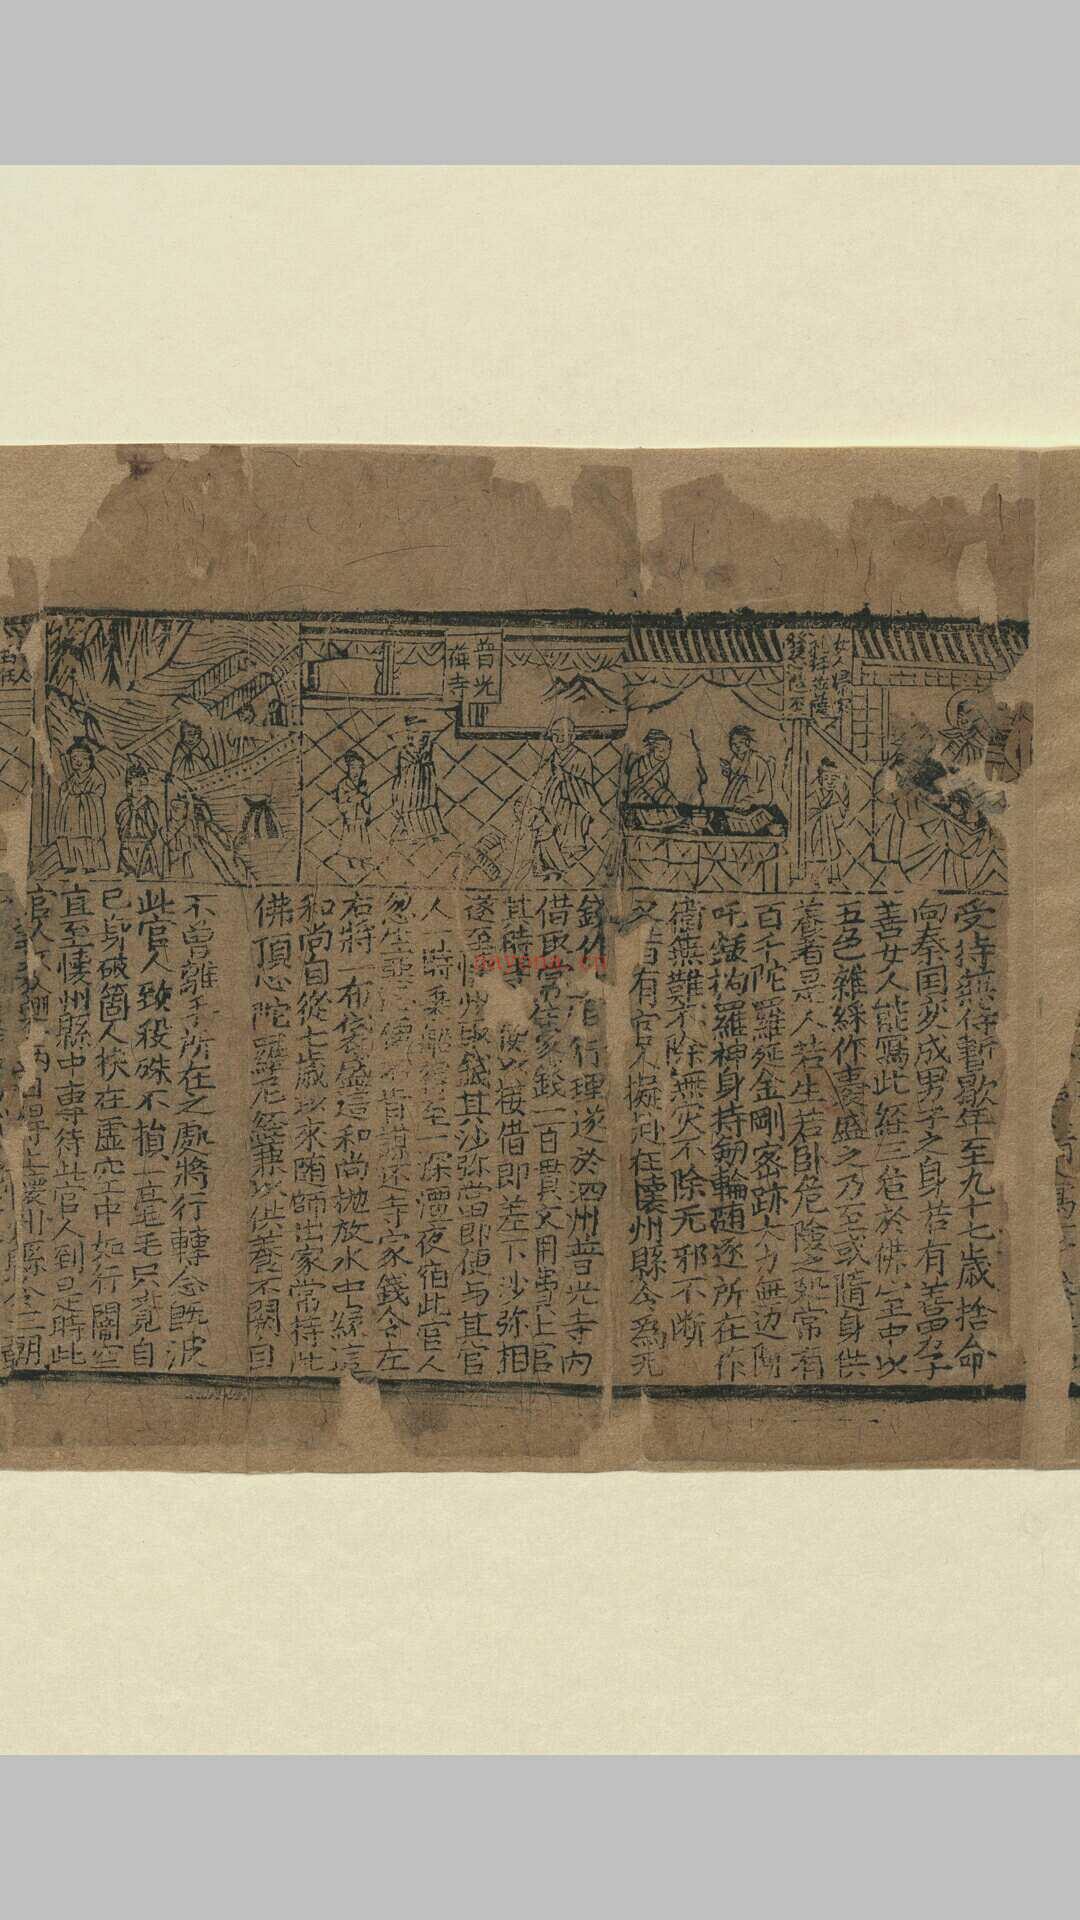 女人歸家
礼拜菩薩
普光
禅寺
受持無待暫歇年至九十七歲捨命
向秦国変成男子之身若有善男子
善女人能寫此經三卷於佛室中以
五色雜綵作囊盛之乃至或隨身供
養者是人若坐若卧危險之處常有
百千陀羅延金剛密跡大力無边阿
吒鈸拘羅神身持劔輪随逐所在作
衛無難不除無灾不除无邪不断
又昔有官人擬赴任懷州縣令為无
錢作 行理遂於泗州普光寺内
借取常住家錢一百貫文用
其時寺 接借即差下沙弥相
遂至懷州取錢其沙弥當即便与其官
人一時乘船得至一深潭夜宿此官人
忽生悪 肯謀还寺家錢令左
右將一布袋盛這和尚抛放水中縁這
和尚自從七歳以來随師出家常持此
佛頂心陀羅尼經兼以供養不闕自
不曽離手所在之處將行轉念既波
此官人致殺殊不損一毫毛只覺自
己身被箇人扶在虚空中如行闇室
直至懷州縣中専待此官人到是時此
官人